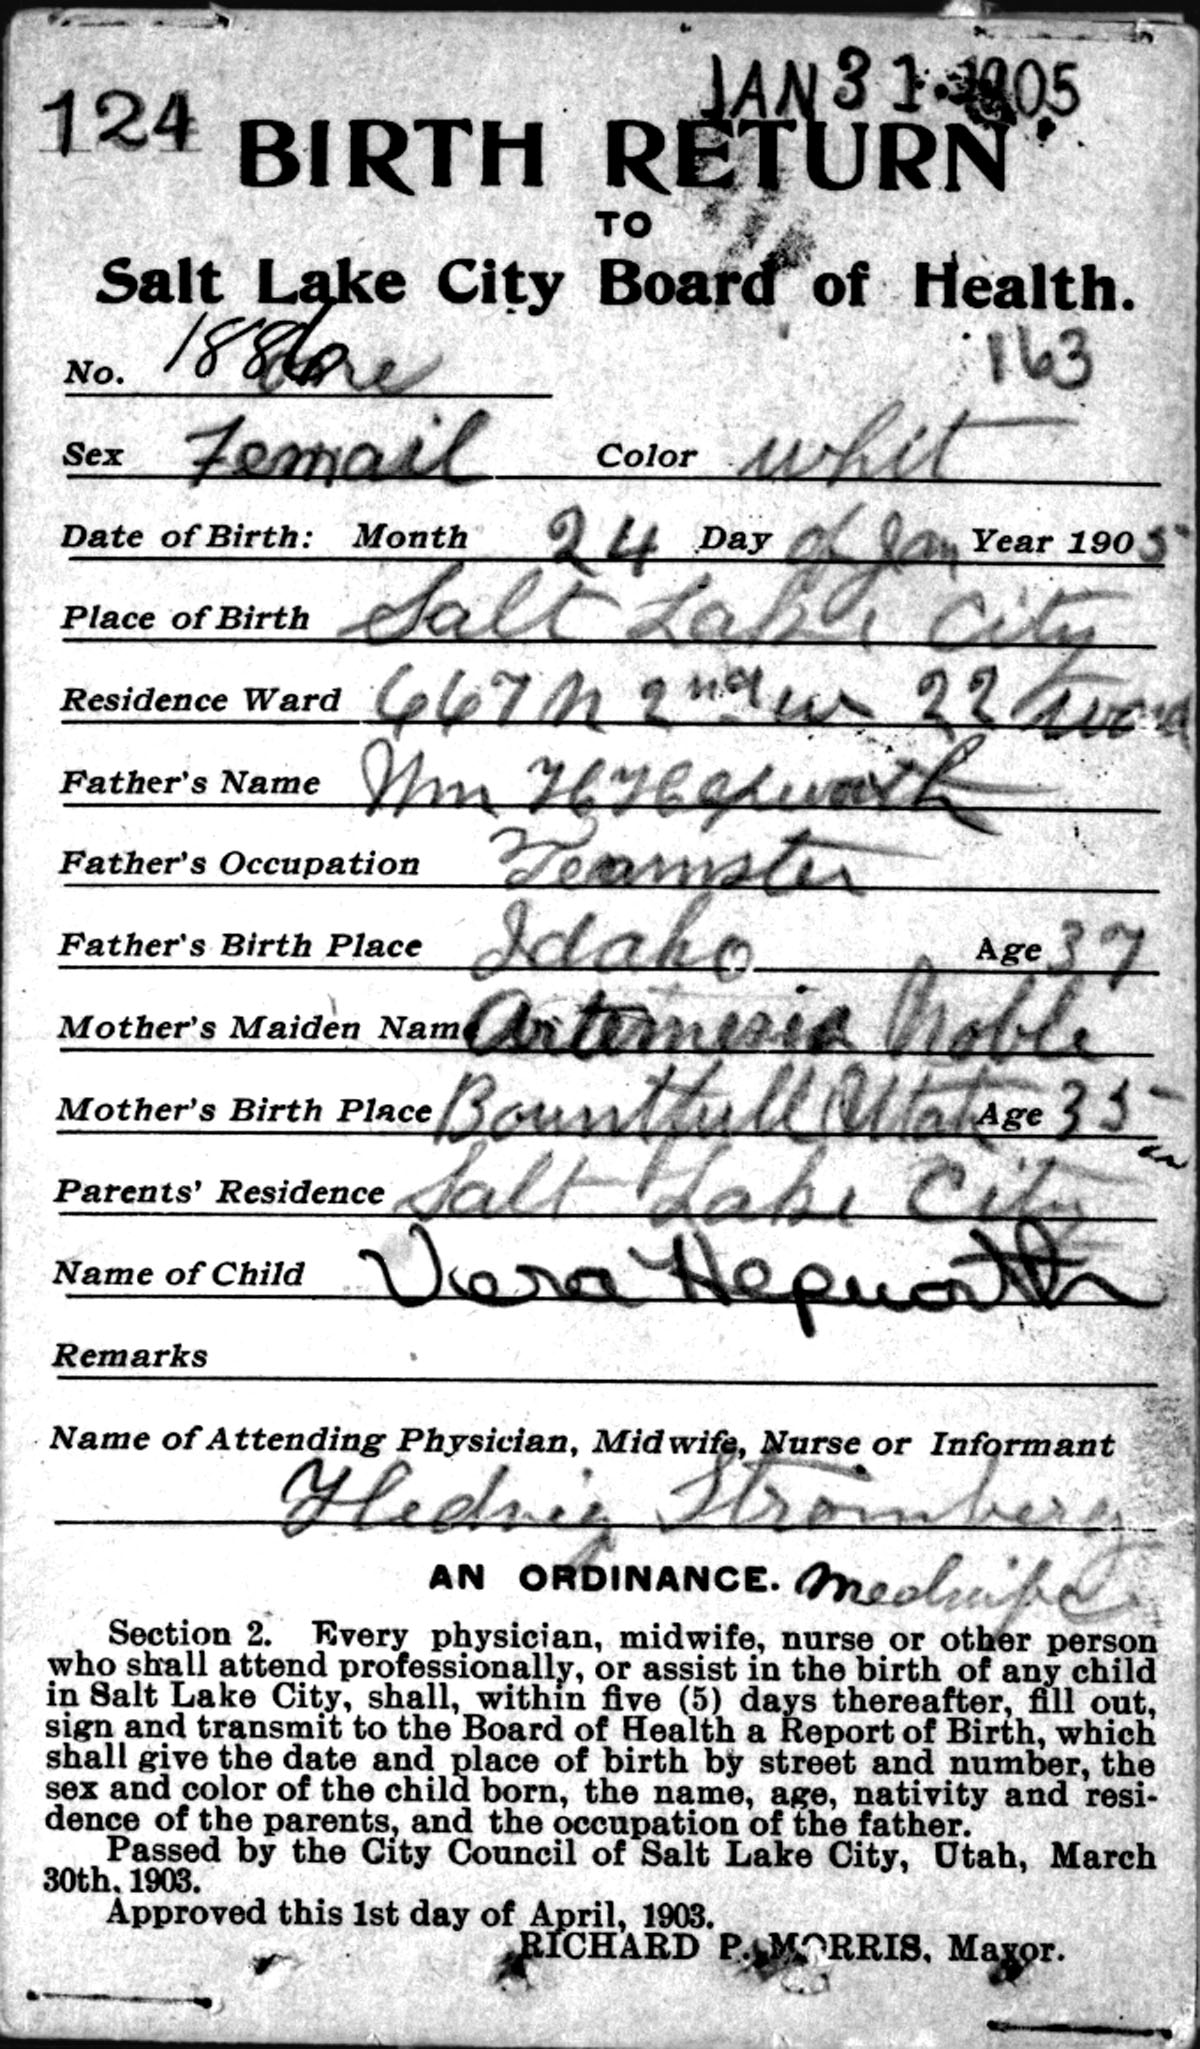 JAN 31 1905
124
BIRTH RETURN
TO
Salt Lake City Board of Health.
163
No. 1886 one
Sex Femail Color whit
Date of Birth: Month 24 Day of Jan Year 1905
Place of Birth Salt Lake City
Residence Ward 667 N 2nd W 22 Ward
Father's Name Wm H Hepworth
Father's Occupation Teamster
Father's Birth Place Idaho Age 37
Mother's Maiden Name Artemesia Noble
Mother's Birth Place Bountfull Utah Age 35
Parents' Residence Salt Lake City
Name of Child Viera Hepworth
Remarks
Name of Attending Physician, Midwife, Nurse or Informant
Hedvig Stromberg
AN ORDINANCE. Medwife
Section 2. Every physician, midwife, nurse or other person
who shall attend professionally, or assist in the birth of any child
in Salt Lake City, shall, within five (5) days thereafter, fill out,
sign and transmit to the Board of Health a Report of Birth, which
shall give the date and place of birth by street and number, the
sex and color of the child born, the name, age, nativity and resi-
dence of the parents, and the occupation of the father.
Passed by the City Council of Salt Lake City, Utah, March
30th, 1903.
Approved this 1st day of April, 1903.
RICHARD P. MORRIS, Mayor.